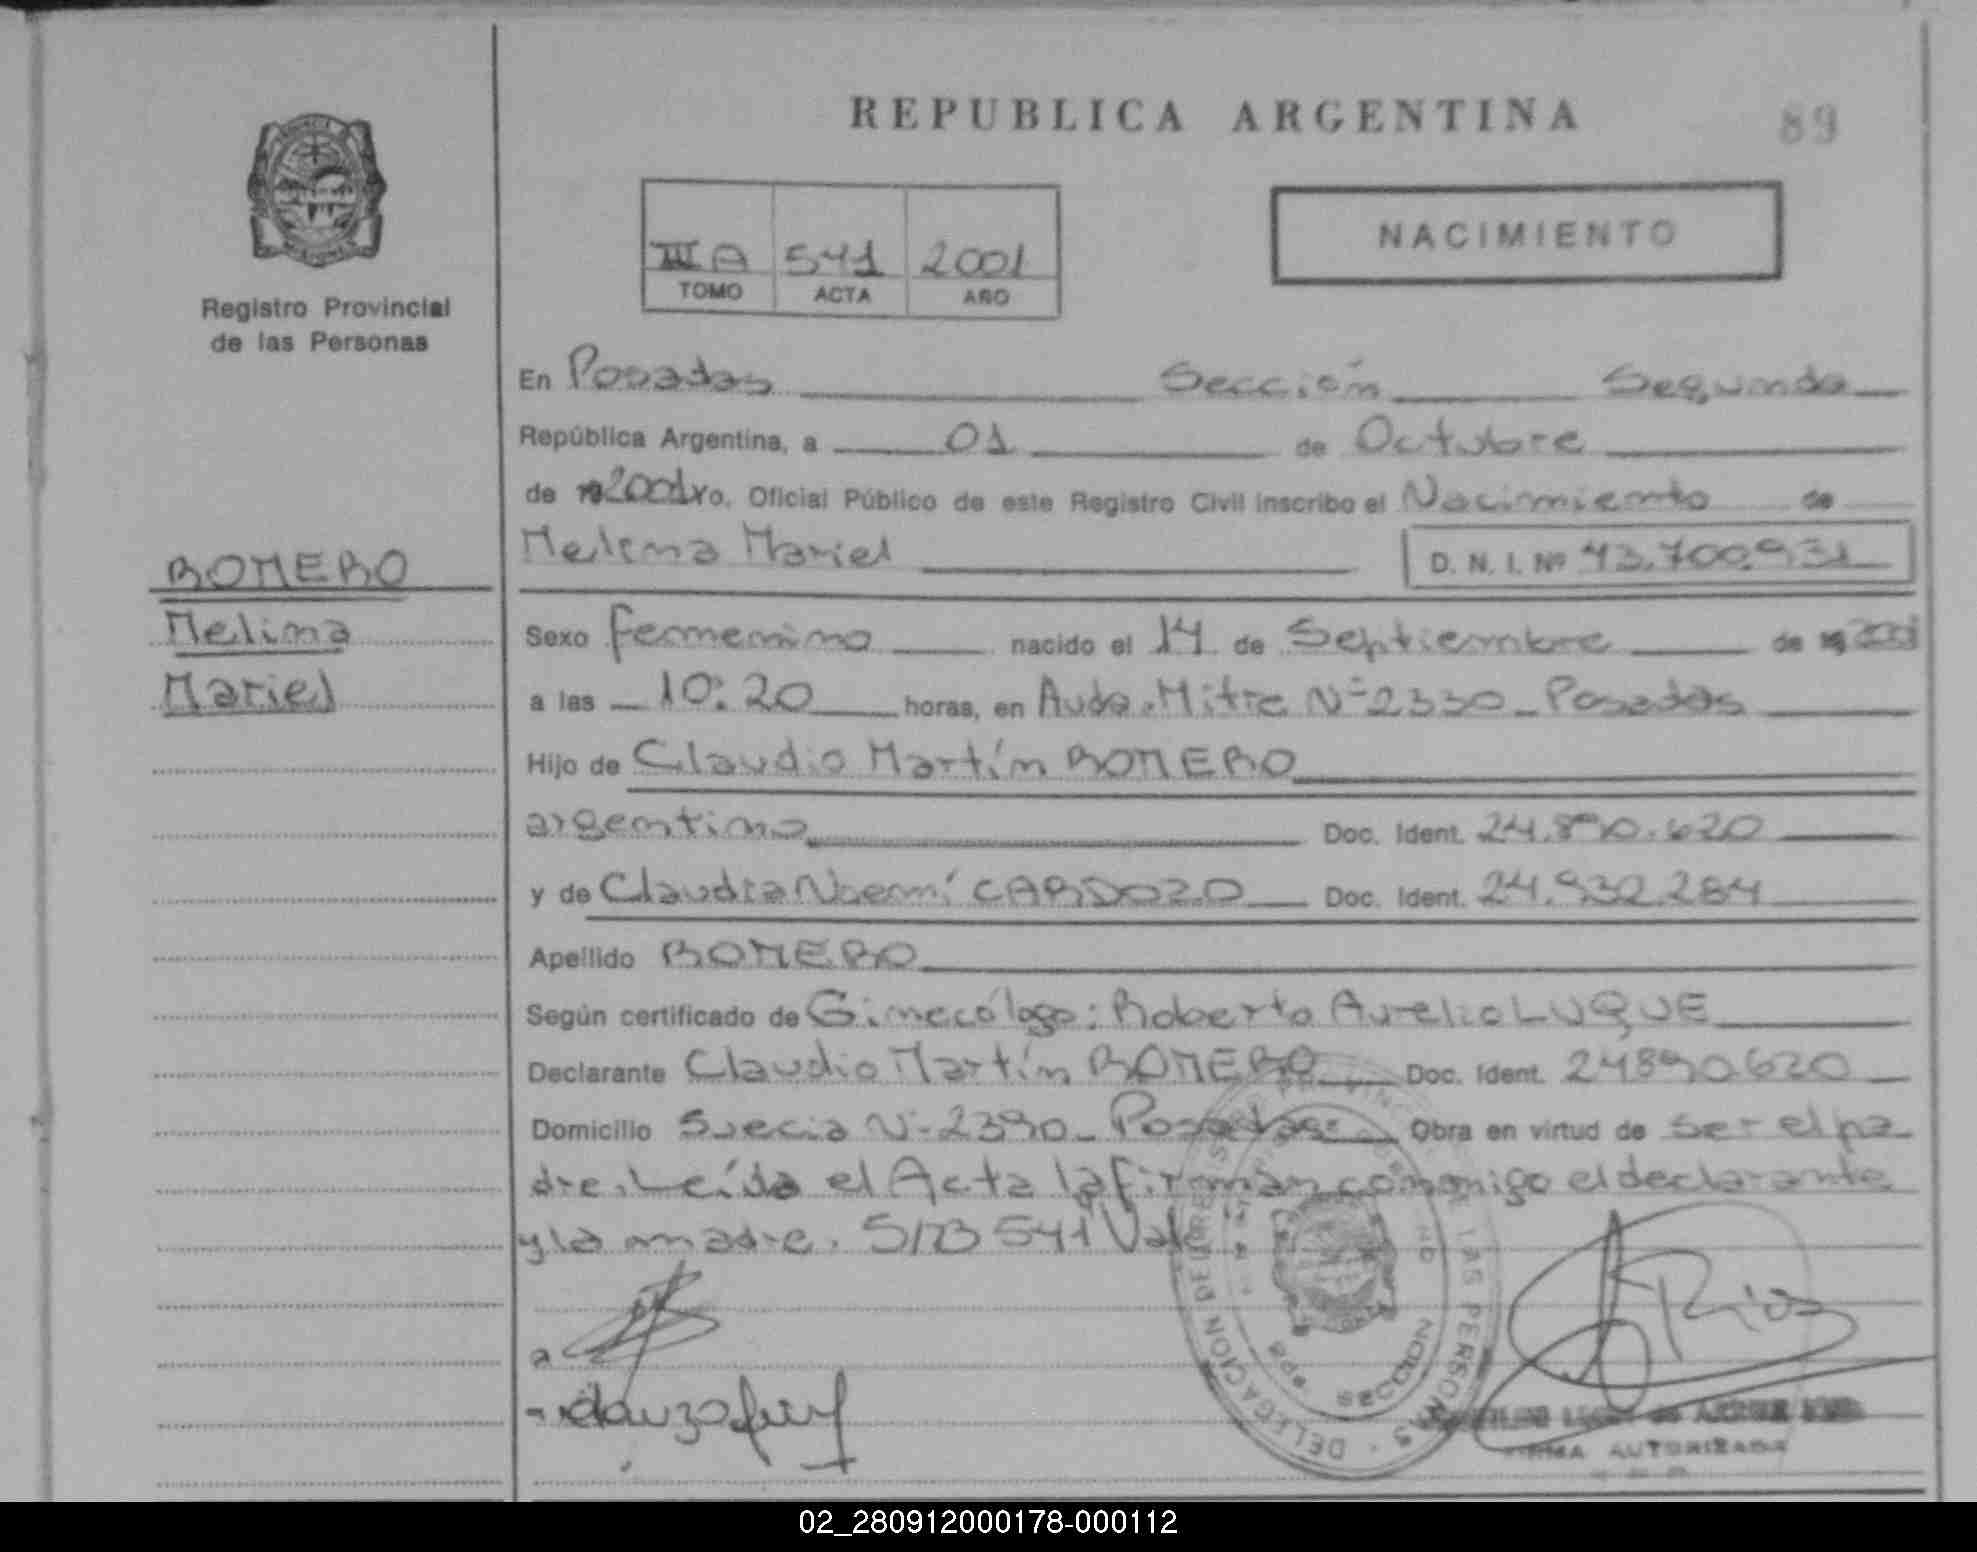 REPUBLICA ARGENTINA
89
NACIMIENTO
III A 541 2001
TOMO ACTA AÑO
Registro Provincial
de las Personas
En Posadas Sección Segunda
República Argentina, a 01 de Octubre
de 192001 Yo, Oficial Público de este Registro Civil inscribo el Nacimiento de
Melina Mariel D. N. I. Nº 43.700.931
ROMERO
Melina
Mariel
Sexo femenino nacido el 14 de Septiembre de 192001
a las 10:20 horas, en Avda. Mitre Nº 2330 - Posadas
Hijo de Claudio Martín ROMERO
argentino Doc. Ident. 24.890.620
y de Claudia Noemí CARDOZO Doc. Ident. 24.932.284
Apellido ROMERO
Según certificado de Ginecólogo: Roberto Aurelio LUQUE
Declarante Claudio Martín ROMERO Doc. Ident. 24890620
Domicilio Suecia Nº 2390 - Posadas Obra en virtud de ser el pa
dre. Leída el Acta la firman conmigo el declarante
y la madre. S/R 541 Vale
DELEGACION DE LAS PERSONAS
SECCION
Rios
FIRMA AUTORIZADA
02_280912000178-000112